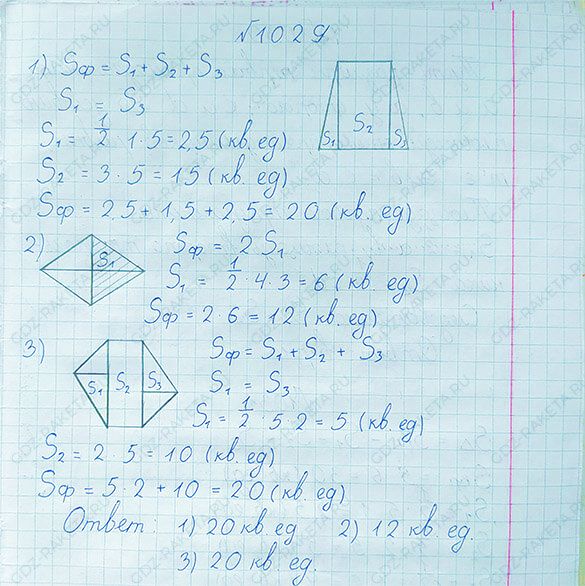 №1029
1) Sф = S1 + S2 + S3
S1 = S3
S1 = 1/2 · 1 · 5 = 2,5 (кв. ед)
S2 = 3 · 5 = 15 (кв. ед)
Sф = 2,5 + 1,5 + 2,5 = 20 (кв. ед)
S1 S2 S3
2) Sф = 2 S1
S1 = 1/2 · 4 · 3 = 6 (кв. ед)
Sф = 2 · 6 = 12 (кв. ед)
S1
3) Sф = S1 + S2 + S3
S1 = S3
S1 = 1/2 · 5 · 2 = 5 (кв. ед)
S1 S2 S3
S2 = 2 · 5 = 10 (кв. ед)
Sф = 5 · 2 + 10 = 20 (кв. ед)
Ответ: 1) 20 кв. ед 2) 12 кв. ед.
3) 20 кв. ед.
GDZ-RAKETA.RU